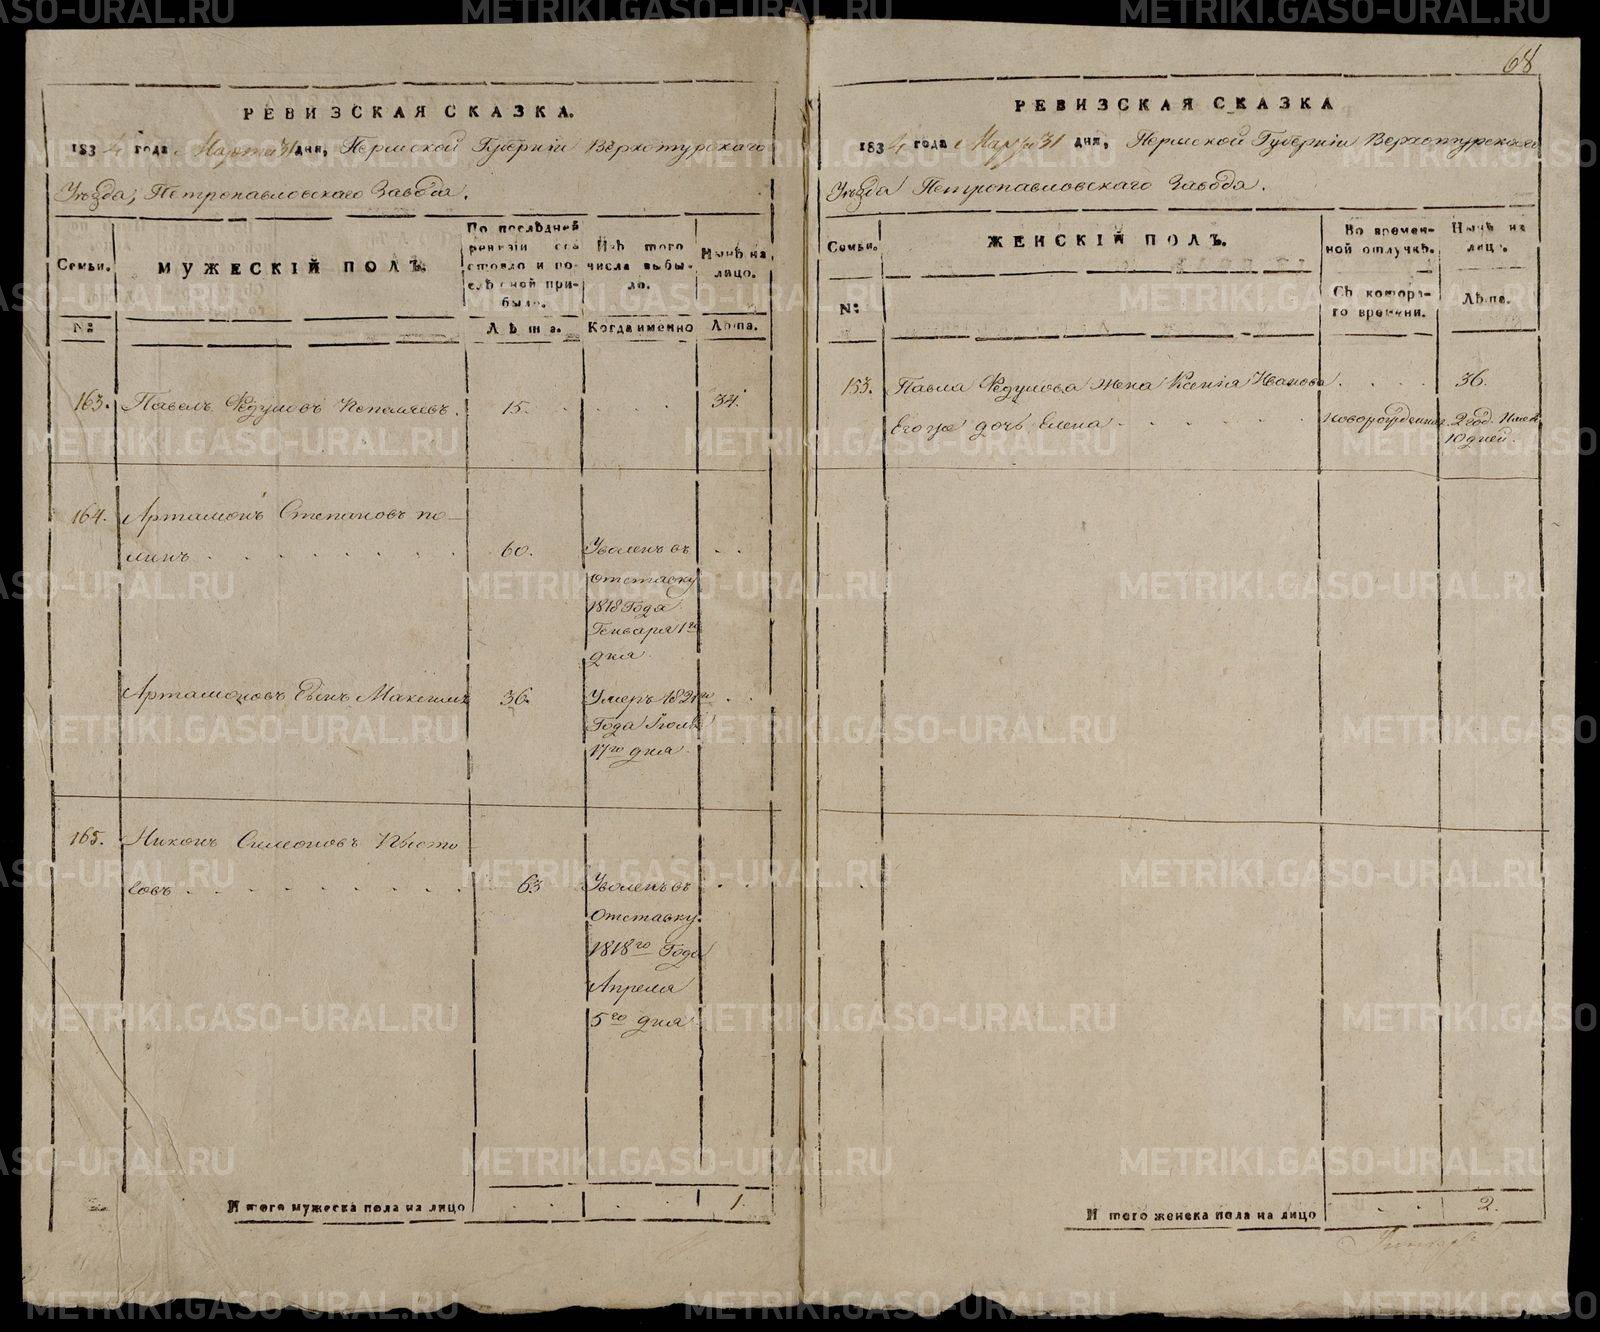 68
РЕВИЗСКАЯ СКАЗКА.
1834 года Марта 31 дня, Пермской Губерніи Верхотурскаго
Уѣзда, Петропавловскаго Завода.
Семьи.
№:
МУЖЕСКІЙ ПОЛЪ.
По послѣдней
ревизіи со-
стояло и по-
слѣ оной при-
было.
Лѣта.
Изъ того
числа выбы-
ло.
Когда именно
Нынѣ на
лицо.
Лѣта.
163. Павелъ Ѳедуловъ 15. 34.
164. Артамонъ Степановъ По-
линъ 60. Уволенъ въ
отставку
1818 Года
Генваря 1го
дня.
Артамоновъ Сынъ Максимъ 36. Умеръ 1821го
Года Іюля
17го дня.
165. Никонъ Симеоновъ
совъ 63 Уволенъ въ
Отставку.
1818го Года
Апреля
5го дня
Итого мужеска пола на лицо 1.
РЕВИЗСКАЯ СКАЗКА
1834 года Марта 31 дня, Пермской Губерніи Верхотурскаго
Уѣзда Петропавловскаго Завода.
Семьи.
№:
ЖЕНСКІЙ ПОЛЪ.
Во времен-
ной отлучкѣ.
Съ котора-
го времени.
Нынѣ на
лицо.
Лѣта.
153. Павла Ѳедулова Жена Ксенія Иванова 36.
Егоже дочь Елена Новорожденная 2 год. 11 мес.
10 дней.
Итого женска пола на лицо 2.
METRIKI.GASO-URAL.RU